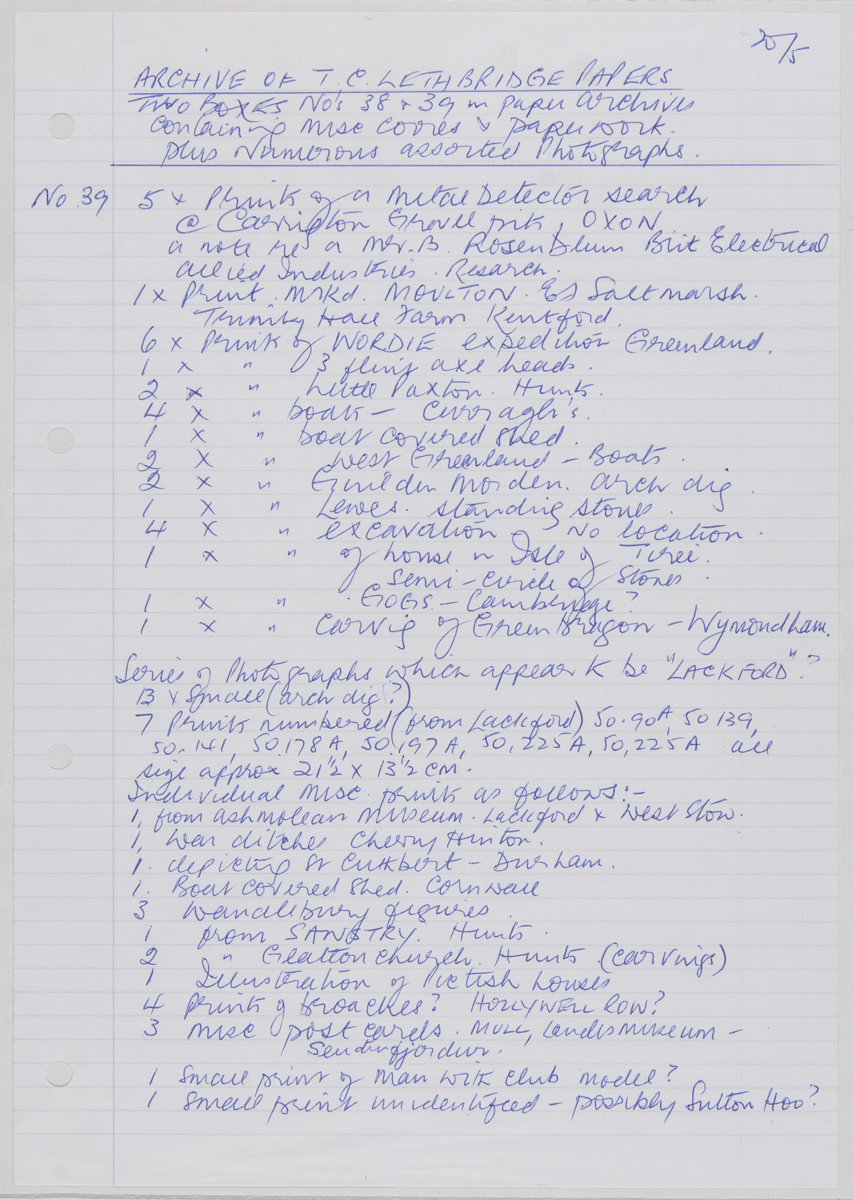 20/5
ARCHIVE OF T.C. LETHBRIDGE PAPERS
Two BOXES No's 38 & 39 in paper archives
containing misc covres & paperwork.
plus Numerous assorted Photographs.
No. 39 5 x Prints of a Metal Detector search
@ Carrington Gravel pit, OXON
a note re a Mr. B. Rosenblum Brit Electrical
allied Industries. Research.
1 x Print. Mrkd. MOULTON. Salt marsh.
Trinity Hall Farm Kentford.
6 x Prints of WORDIE expedition Greenland.
1 x " 3 flint axe heads.
2 x " Little Paxton. Hunts.
4 x " boats – Curragh's.
1 x " boat covered shed.
2 x " West Greenland – Boats.
2 x " Guilden Morden. arch dig.
1 x " Lewes. standing stones.
4 x " excavation – No location.
1 x " of house in Isle of Tiree.
Semi-circle of Stones.
1 x " GOGS – Cambridge?
1 x " Carvig of Green Dragon – Wymondham.
Series of Photographs which appear to be "LACKFORD"?
13 x Small (arch dig?)
7 Prints numbered (from Lackford) 50.90A, 50139,
50.141, 50.178A, 50.197A, 50,225A, 50,225A all
size approx 21½ x 13½ cm.
Individual Misc. prints as follows:-
1, from Ashmolean Museum. Lackford & West Stow.
1, War ditches Cherry Hinton.
1. depicting St Cuthbert – Durham.
1. Boat covered Shed. Cornwall
3 Wandlebury figures.
1 from SANSTRY. Hunts.
2 " Glatton church. Hunts. (carvings)
1 Illustration of Pictish houses
4 Prints of broaches? HOLLYWELL ROW?
3 misc post cards. MULL, Landsmuseum –
1 Small print of Man with club model?
1 Small print unidentified – possibly Sutton Hoo?